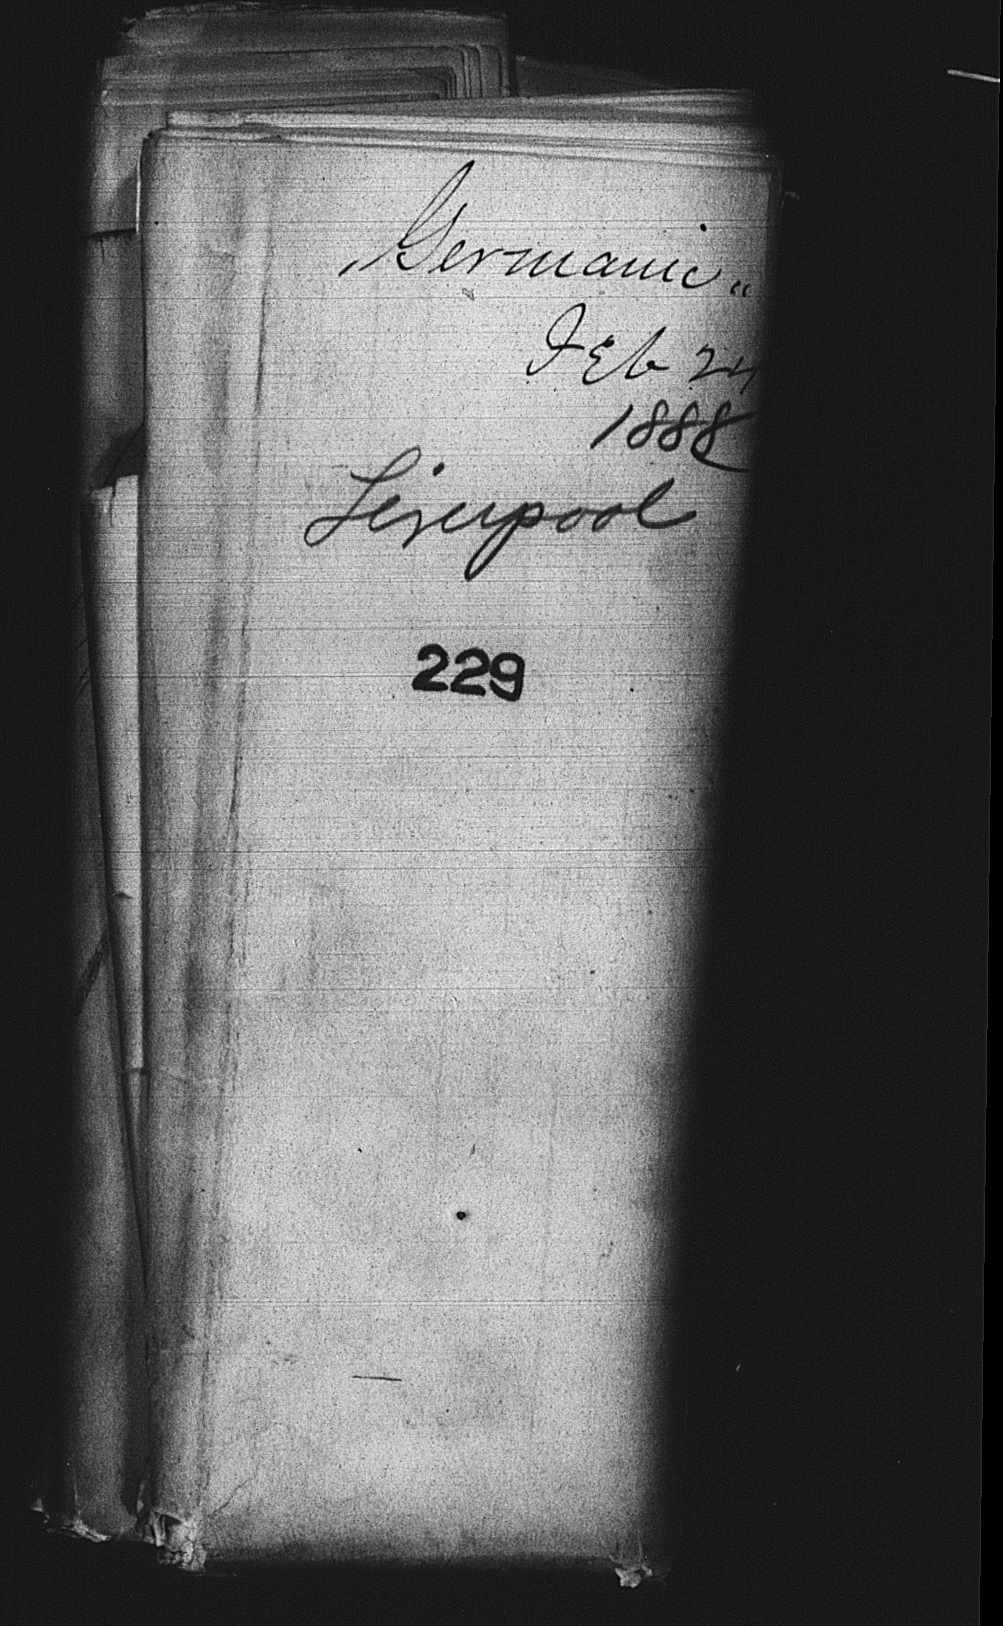 „Germanic"
Feb 24
1888
Liverpool
229